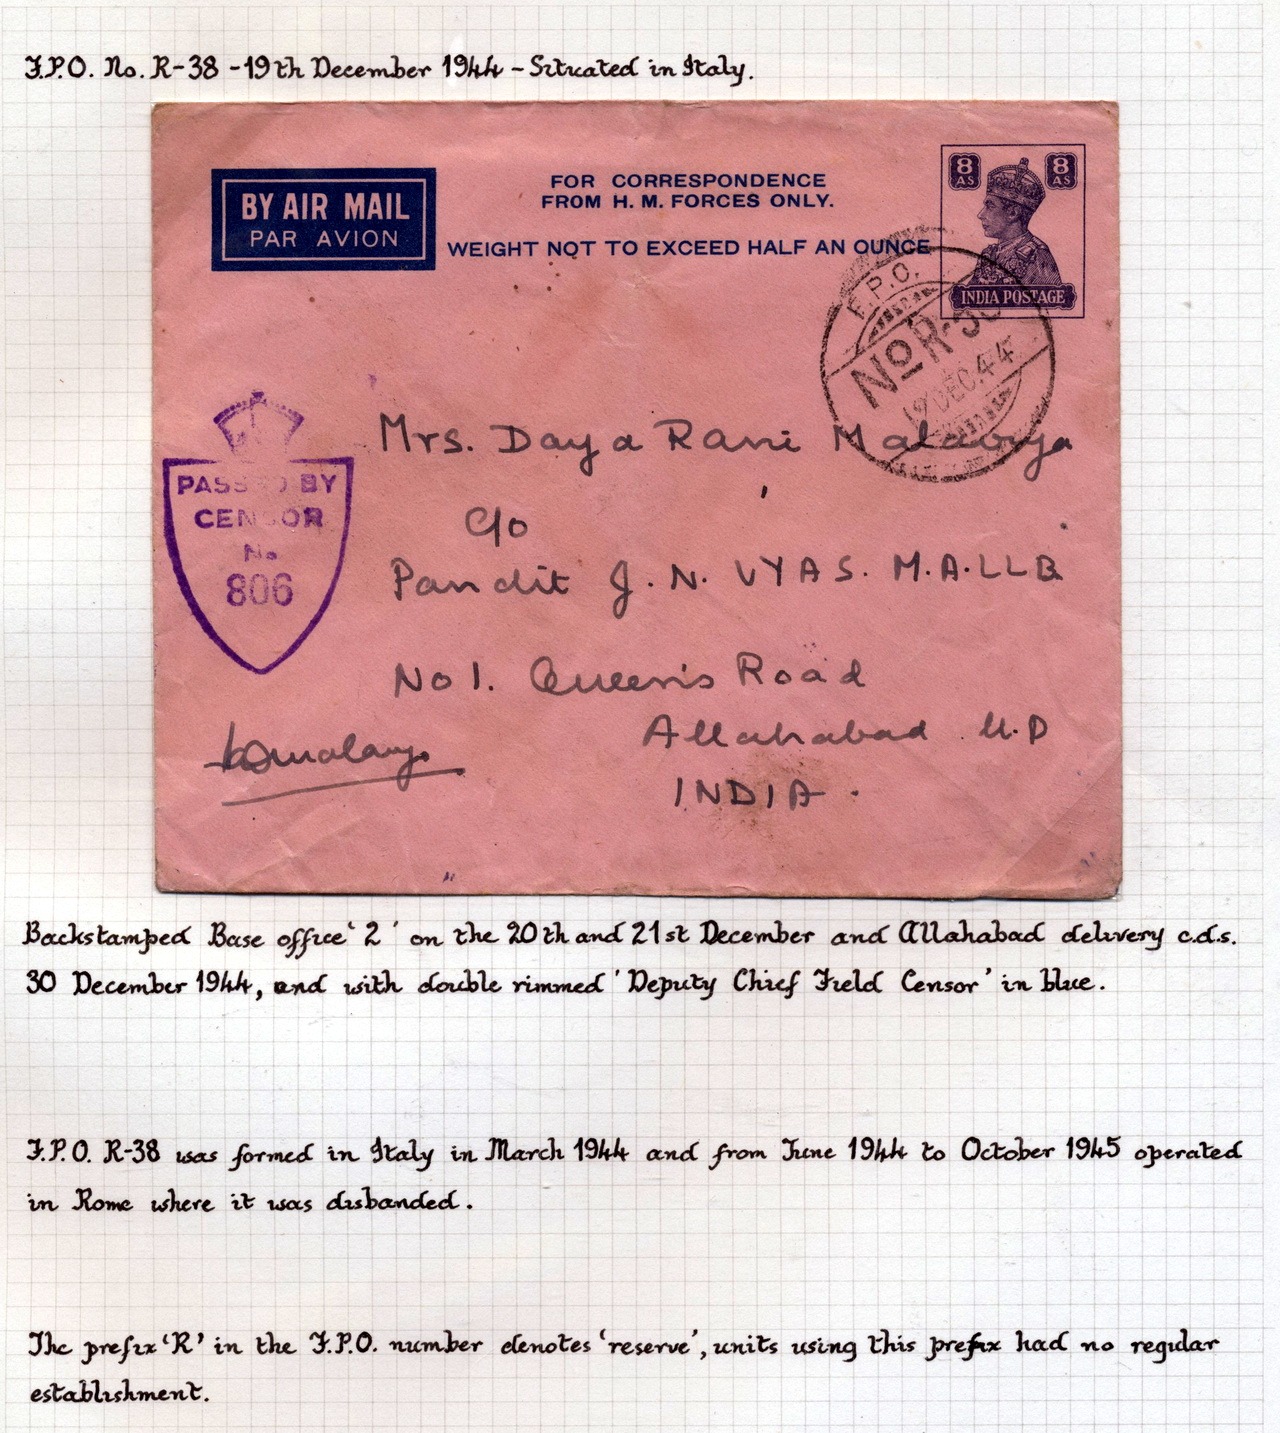 F.P.O. No. R-38 - 19th December 1944 - Situated in Italy.
BY AIR MAIL
PAR AVION
FOR CORRESPONDENCE
FROM H. M. FORCES ONLY.
WEIGHT NOT TO EXCEED HALF AN OUNCE
8 AS
8 AS
INDIA POSTAGE
F.P.O.
No R-38
19 DEC. 44
PASSED BY
CENSOR
No
806
Mrs. Daya Rani Malaviya
C/o
Pandit J. N. VYAS. M.A. LLB
No 1. Queen's Road
Allahabad U.P
INDIA.
Backstamped Base office '2' on the 20th and 21st December and Allahabad delivery c.d.s.
30 December 1944, and with double rimmed 'Deputy Chief Field Censor' in blue.
F.P.O. R-38 was formed in Italy in March 1944 and from June 1944 to October 1945 operated
in Rome where it was disbanded.
The prefix 'R' in the F.P.O. number denotes 'reserve', units using this prefix had no regular
establishment.